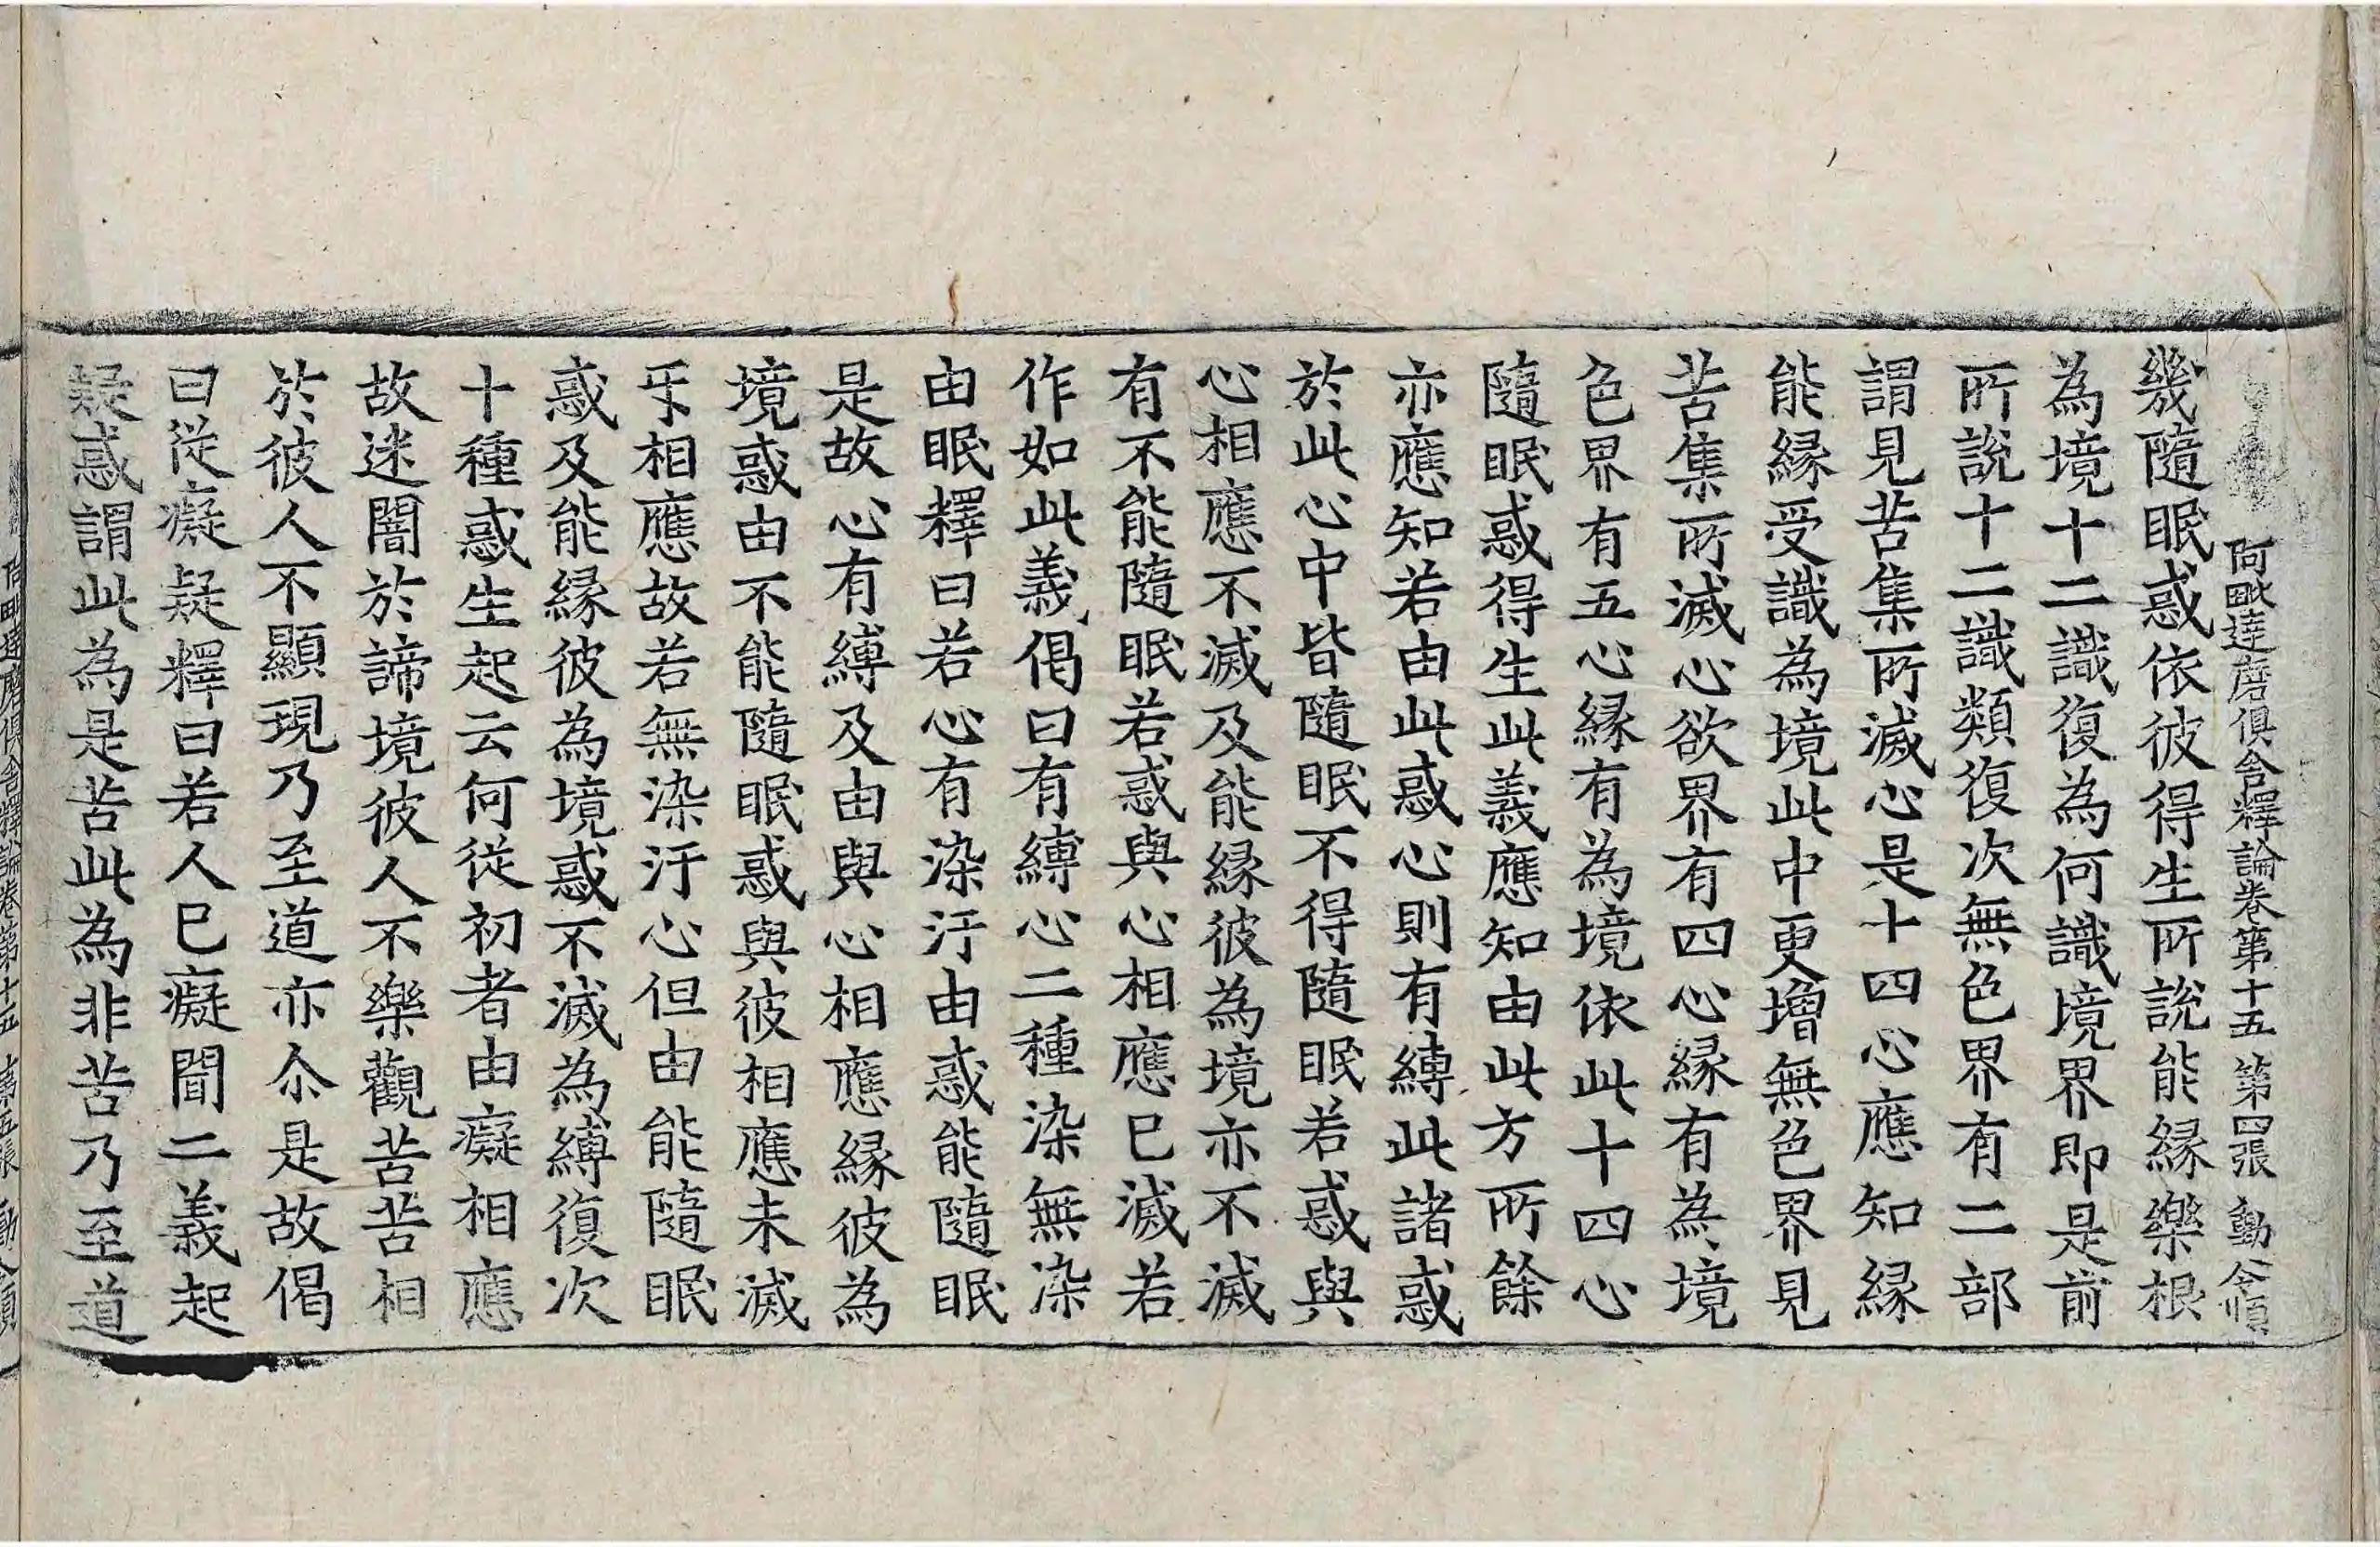 阿毗達磨俱舍釋論卷第十五 第四張 動
幾隨眠惑依彼得生所說能緣樂根
為境十二識復為何識境界即是前
所說十二識類復次無色界有二部
謂見苦集所滅心是十四心應知緣
能緣受識為境此中更增無色界見
苦集所滅心欲界有四心緣有為境
色界有五心緣有為境依此十四心
隨眠惑得生此義應知由此方所餘
亦應知若由此惑心則有縛此諸惑
於此心中皆隨眠不得隨眠若惑與
心相應不滅及能緣彼為境亦不滅
有不能隨眠若惑與心相應已滅若
作如此義偈曰有縛心二種染無染
由眠釋曰若心有染汙由惑能隨眠
是故心有縛及由與心相應緣彼為
境惑由不能隨眠惑與彼相應未滅
㸦相應故若無染汙心但由能隨眠
惑及能緣彼為境惑不滅為縛復次
十種惑生起云何從初者由癡相應
故迷闇於諦境彼人不樂觀苦苦相
於彼人不顯現乃至道亦尒是故偈
曰從癡疑釋曰若人已癡聞二義起
疑惑謂此為是苦此為非苦乃至道
阿毗達磨俱舍釋論卷第十五 第五張